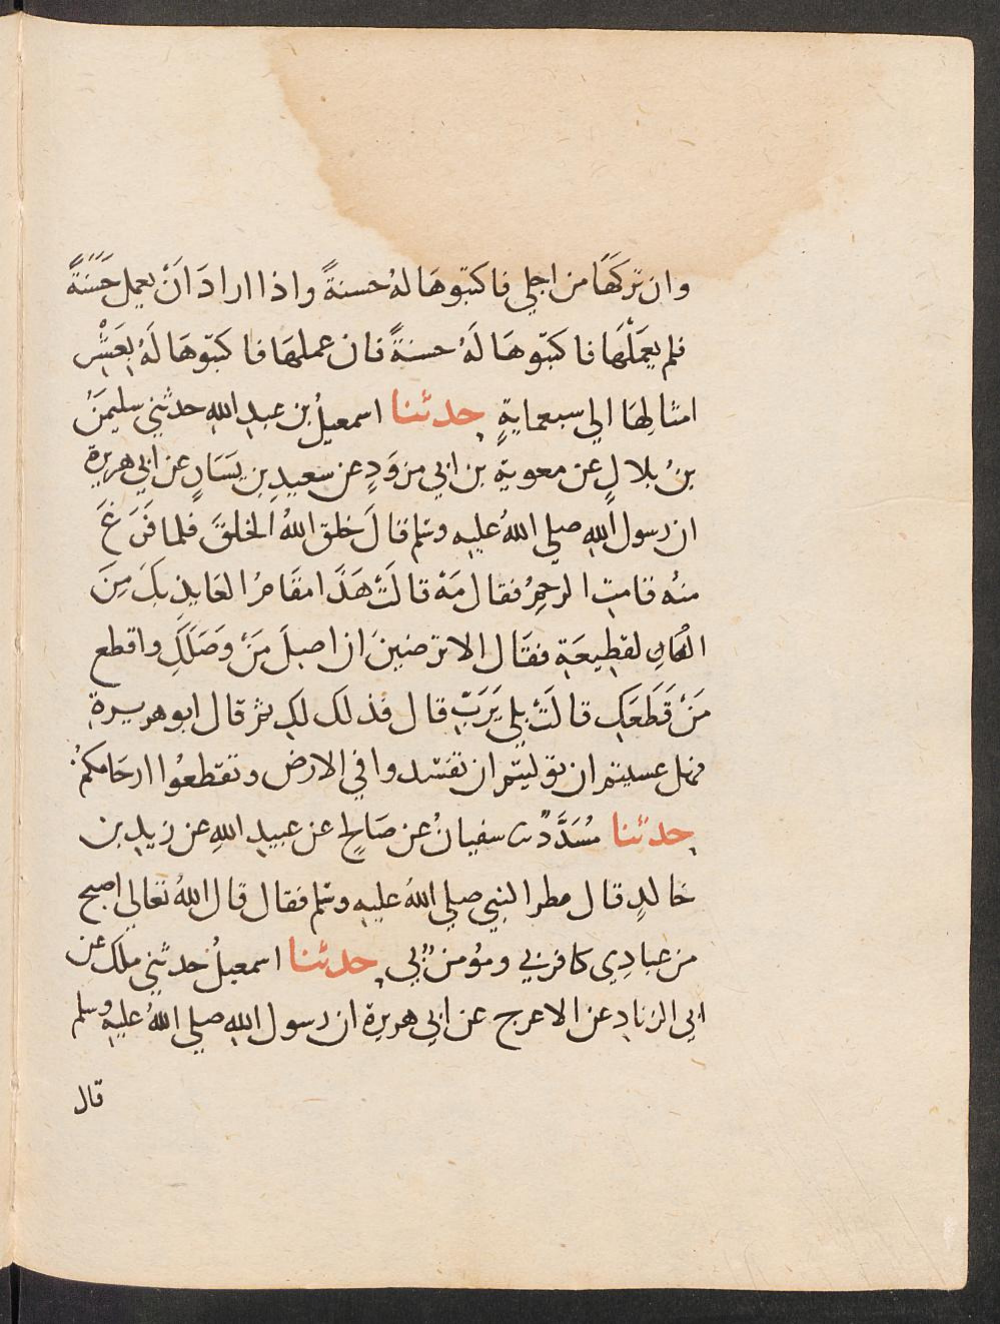 وان تركَهَا من اجلي فاكتبوهَا لهُ حسنةً واذا ارادَ انْ يعمل حَسَنَةً
فلم يعمَلْهَا فاكتبوهَا لَهُ حسنةً فان عملهَا فاكتبوهَا لَهُ بِعَشْرِ
امثالِهَا الي سبعمايةٍ حدثنا اسمعيلُ بن عبدِ اللهِ حدثني سليمنُ
بنُ بلالٍ عن معوية بن ابي مزوَدٍ عن سعيدِ بن يَسَارٍ عن ابي هريرة
ان رسول اللهِ صلي اللهُ عليه وسلم قالَ خلق اللهُ الخلقَ فلما فَرَغَ
منهُ قامتِ الرحمُ فقال مَهْ قالَتْ هَذَا مقَامُ العَايذِ بكَ مِنَ
القطِيعَةِ فقَال الا ترضينَ ان اصِلَ مَنْ وَصَلَكِ واقطع
مَنْ قَطَعَكِ قالَتْ بلي يَرَبِّ قال فذلك لكِ ثم قال ابو هريرة
فهل عسيتم ان توليتم ان تفسدوا في الارض وتقطعُوا ارحَامكمُ
حدثنا مُسَدَّدٌ ث سفيانُ عن صَالِحٍ عن عبيدِ اللهِ عن زيدِ بن
خالدٍ قال مطر النبي صلي اللهُ عليه وسلم فقال قال اللهُ تعَالي اصبح
من عبادِي كافر بي ومُومنٌ بي حدثنا اسمعيلُ حدثني ملك عن
ابي الزنادِ عن الاعرج عن ابي هريرة ان رسول اللهِ صلي اللهُ عليه وسلم
قال